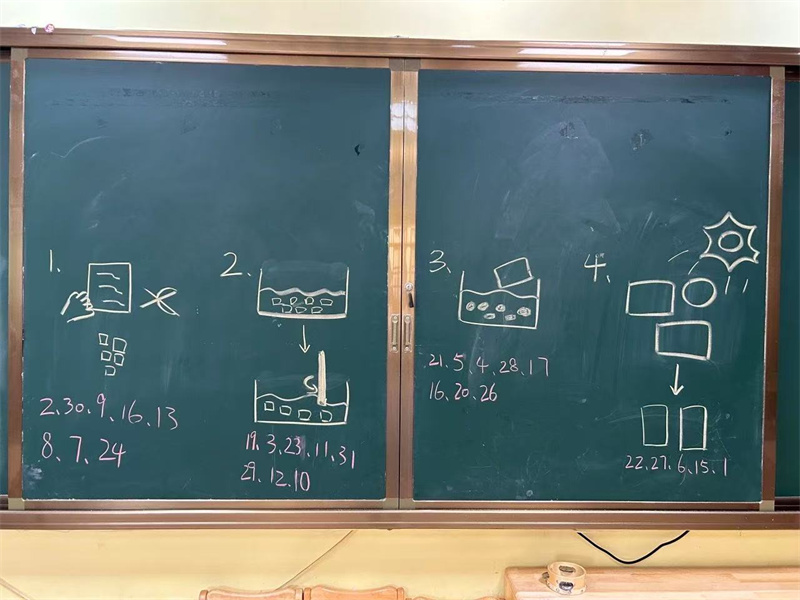 1.
2、30、9、16、13
8、7、24
2.
19、3、23、11、31
29、12、10
3、
21、5、4、28、17
16、20、26
4、
22、27、6、15、1